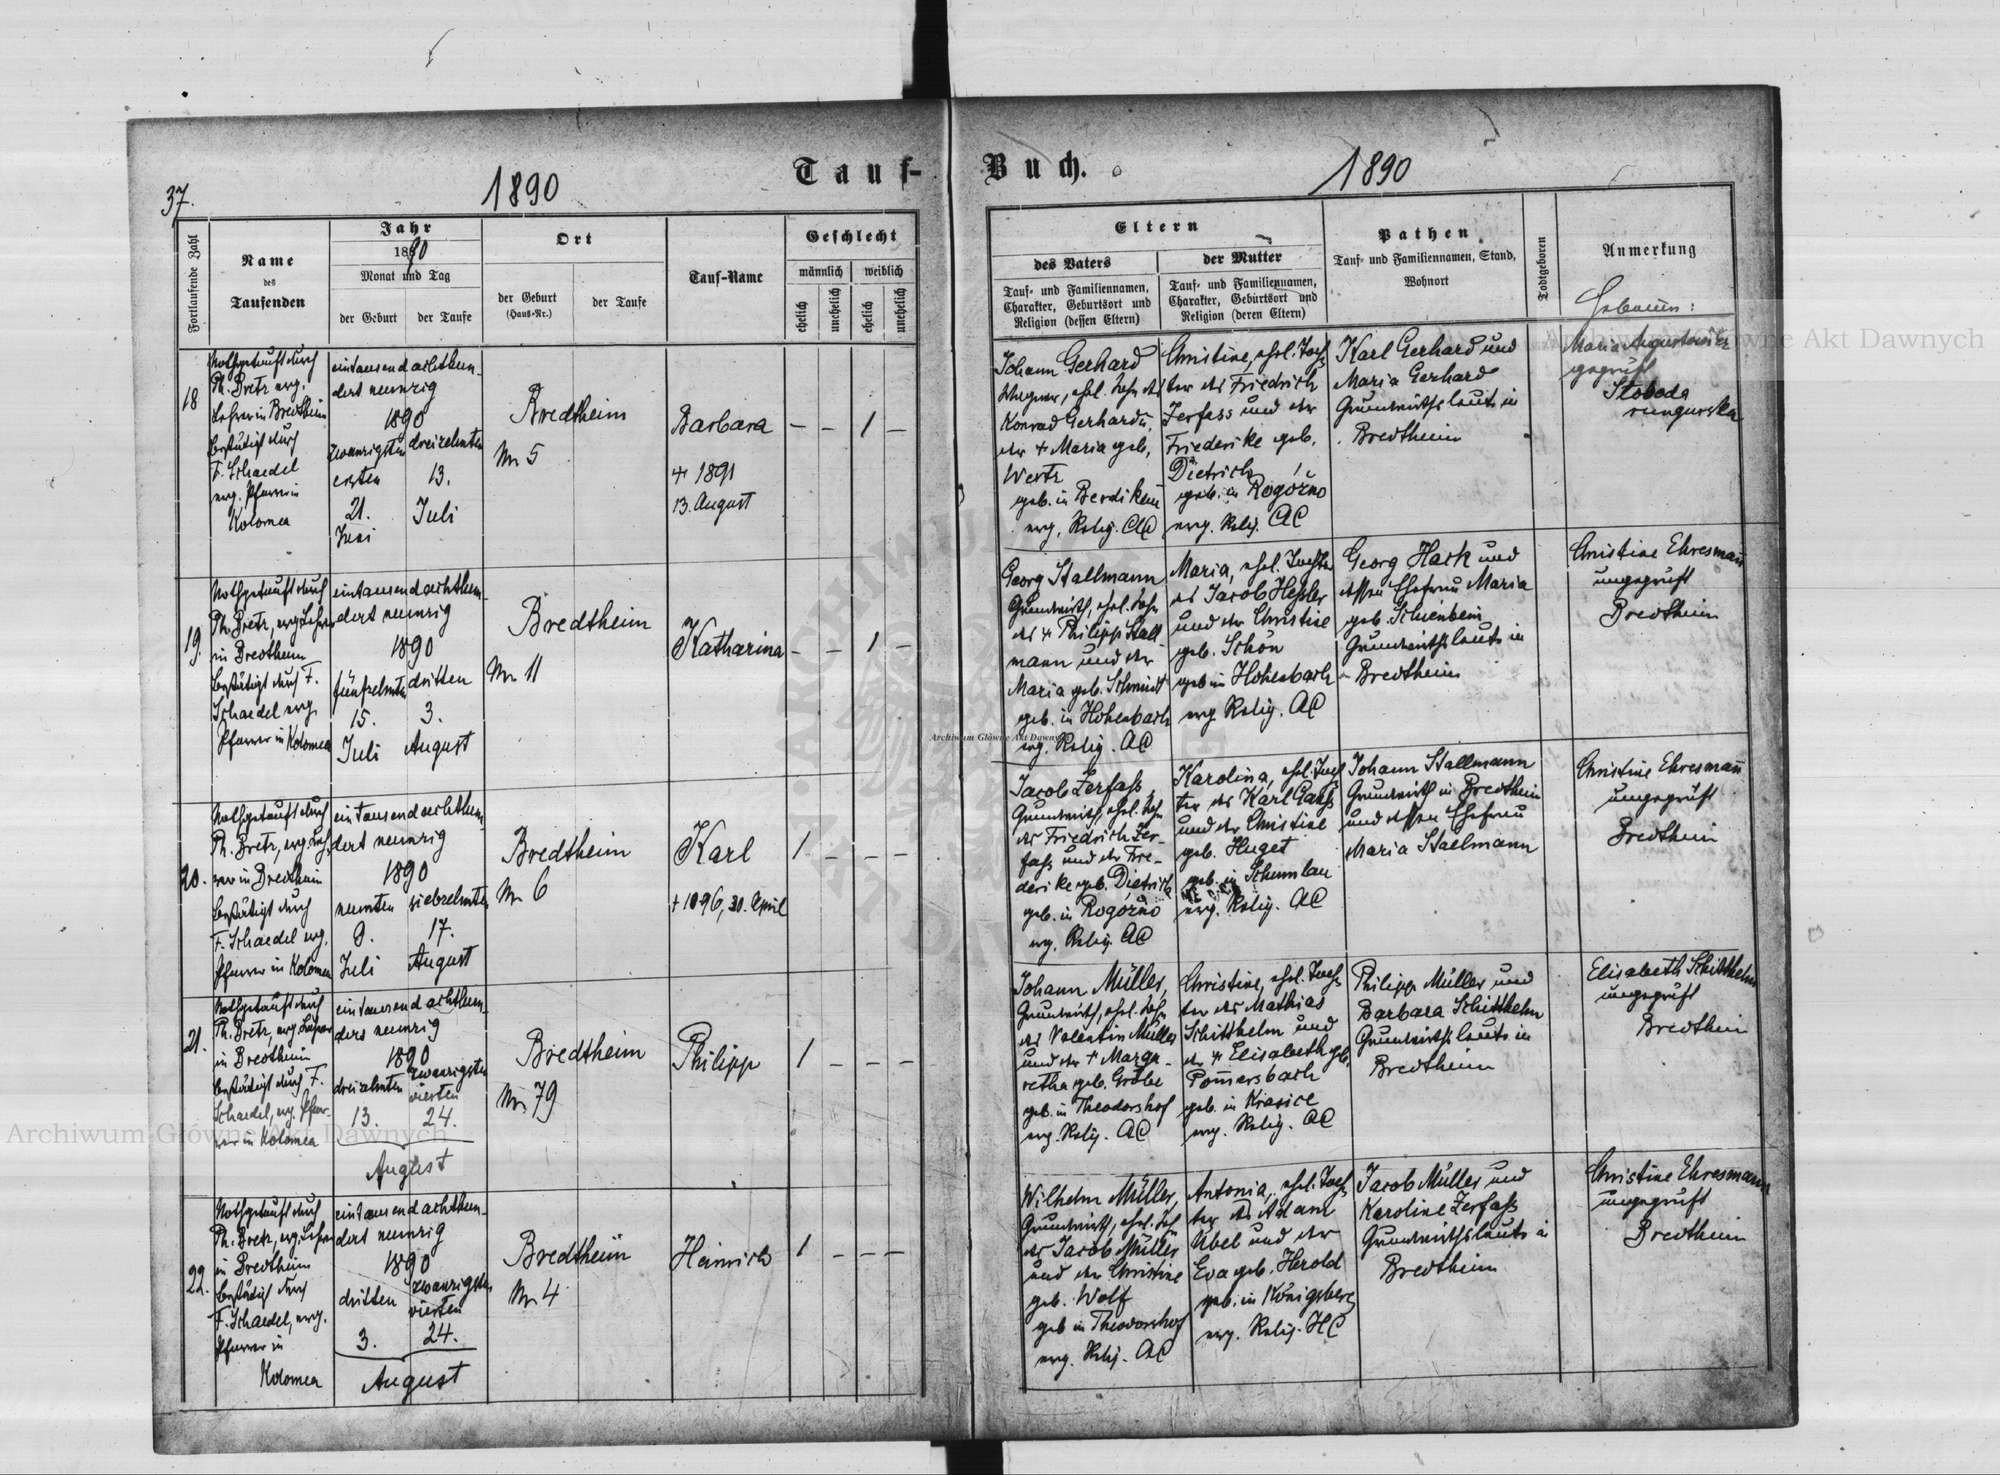 37.
1890
Tauf-
Buch.
1890
Fortlaufende Zahl
Name
des
Taufenden
Jahr
1890
Monat und Tag
der Geburt
der Taufe
Ort
der Geburt
(Haus-Nr.)
der Taufe
Tauf-Name
Geschlecht
männlich
weiblich
ehelich
unehelich
ehelich
unehelich
Eltern
des Vaters
Tauf- und Familiennamen,
Charakter, Geburtsort und
Religion (dessen Eltern)
der Mutter
Tauf- und Familiennamen,
Charakter, Geburtsort und
Religion (deren Eltern)
Pathen
Tauf- und Familiennamen, Stand,
Wohnort
Todtgeboren
Anmerkung
Hebamm:
18
Nothgetauft durch
Ph. Bretz evg.
Lehrer in Bredtheim
bestätigt durch
F. Schaedel
evg. Pfarrer in
Kolomea
eintausend achthun-
dert neunzig
1890
zwanzigsten
ersten
21.
Juni
dreizehnten
13.
Juli
Bredtheim
Nr 5
Barbara
+ 1891
13. August
— — 1 —
Johann Gerhard
Wagner, ehel. Sohn des
Konrad Gerhard u.
der + Maria geb.
Wertz
geb. in Berdikau
evg. Relig. AC
Christine, ehel. Toch-
ter des Friedrich
Zerfass und der
Friederike geb.
Dietrich
geb. in Rogóżno
evg. Relig. AC
Karl Gerhard und
Maria Gerhard
Grundwirthsleute in
Bredtheim
Maria Augustowicz
geprüft
Słoboda
rungurska
19.
Nothgetauft durch
Ph. Bretz, evg. Lehrer
in Bredtheim
bestätigt durch F.
Schaedel evg.
Pfarrer in Kolomea
eintausend achthun-
dert neunzig
1890
fünfzehnten
15.
Juli
dritten
3.
August
Bredtheim
Nr 11
Katharina
— — 1 —
Georg Stallmann
Grundwirth, ehel. Sohn
des + Philipp Stall
mann und der
Maria geb. Schmidt
geb. in Hohenbach
evg. Relig. AC
Maria, ehel. Tochter
des Jacob Hessler
und der Christine
geb. Schön
geb in Hohenbach
evg. Relig. AC
Georg Hack und
dessen Ehefrau Maria
geb. Schienbein
Grundwirthsleute in
Bredtheim
Christine Ehresmañ
ungeprüft
Bredtheim
20.
Nothgetauft durch
Ph. Bretz, evg. Leh-
rer in Bredtheim
bestätigt durch
F. Schaedel evg.
Pfarrer in Kolomea
eintausend achthun-
dert neunzig
1890
neunten
9.
Juli
siebzehnten
17.
August
Bredtheim
Nr 6
Karl
+ 1896, 30. April
1 — — —
Jacob Zerfass,
Grundwirth, ehel. Sohn
des Friedrich Zer-
fass und der Frie-
derike geb. Dietrich
geb. in Rogóżno
evg. Relig. AC
Karolina, ehel. Toch-
ter des Karl Gauss
und der Christine
geb. Huget
geb. in Schumlau
evg. Relig. AC
Johann Stallmann
Grundwirth in Bredtheim
und dessen Ehefrau
Maria Stallmann
Christine Ehresmañ
ungeprüft
Bredtheim
21.
Nothgetauft durch
Ph. Bretz, evg. Lehrer
in Bredtheim
bestätigt durch F.
Schaedel, evg. Pfar-
rer in Kolomea
eintausend achthun-
dert neunzig
1890
dreizehnten
13.
zwanzigsten
vierten
24.
August
Bredtheim
Nr. 79
Philipp
1 — —
Johann Müller,
Grundwirth, ehel. Sohn
des Valentin Müller
und der + Marga-
retha geb. Gröbe
geb. in Theodorshof
evg. Relig. AC
Christine, ehel. Toch-
ter des Mathias
Schitthelm und
der + Elisabeth geb.
Pom̃ersbach
geb. in Krasice
evg. Relig. AC
Philipp Müller und
Barbara Schitthelm
Grundwirthsleute in
Bredtheim
Elisabeth Schitthelm
ungeprüft
Bredtheim
22.
Nothgetauft durch
Ph. Bretz, evg. Lehrer
in Bredtheim
bestätigt durch
F. Schaedel, evg.
Pfarrer in
Kolomea
eintausend achthun-
dert neunzig
1890
dritten
3.
zwanzigsten
vierten
24.
August
Bredtheim
Nr 4
Heinrich
1 — — —
Wilhelm Müller,
Grundwirth, ehel. Sohn
des Jacob Müller
und der Christine
geb. Wolf
geb in Theodorshof
evg. Relig. AC
Antonia, ehel. Toch-
ter des Adam
Ubel und der
Eva geb. Herold
geb. in Königsberg
evg. Relig. HC
Jacob Müller und
Karoline Zerfass
Grundwirthsleute in
Bredtheim
Christine Ehresmann
ungeprüft
Bredtheim
Archiwum Główne Akt Dawnych
Archiwum Główne Akt Dawnych
Archiwum Główne Akt Dawnych